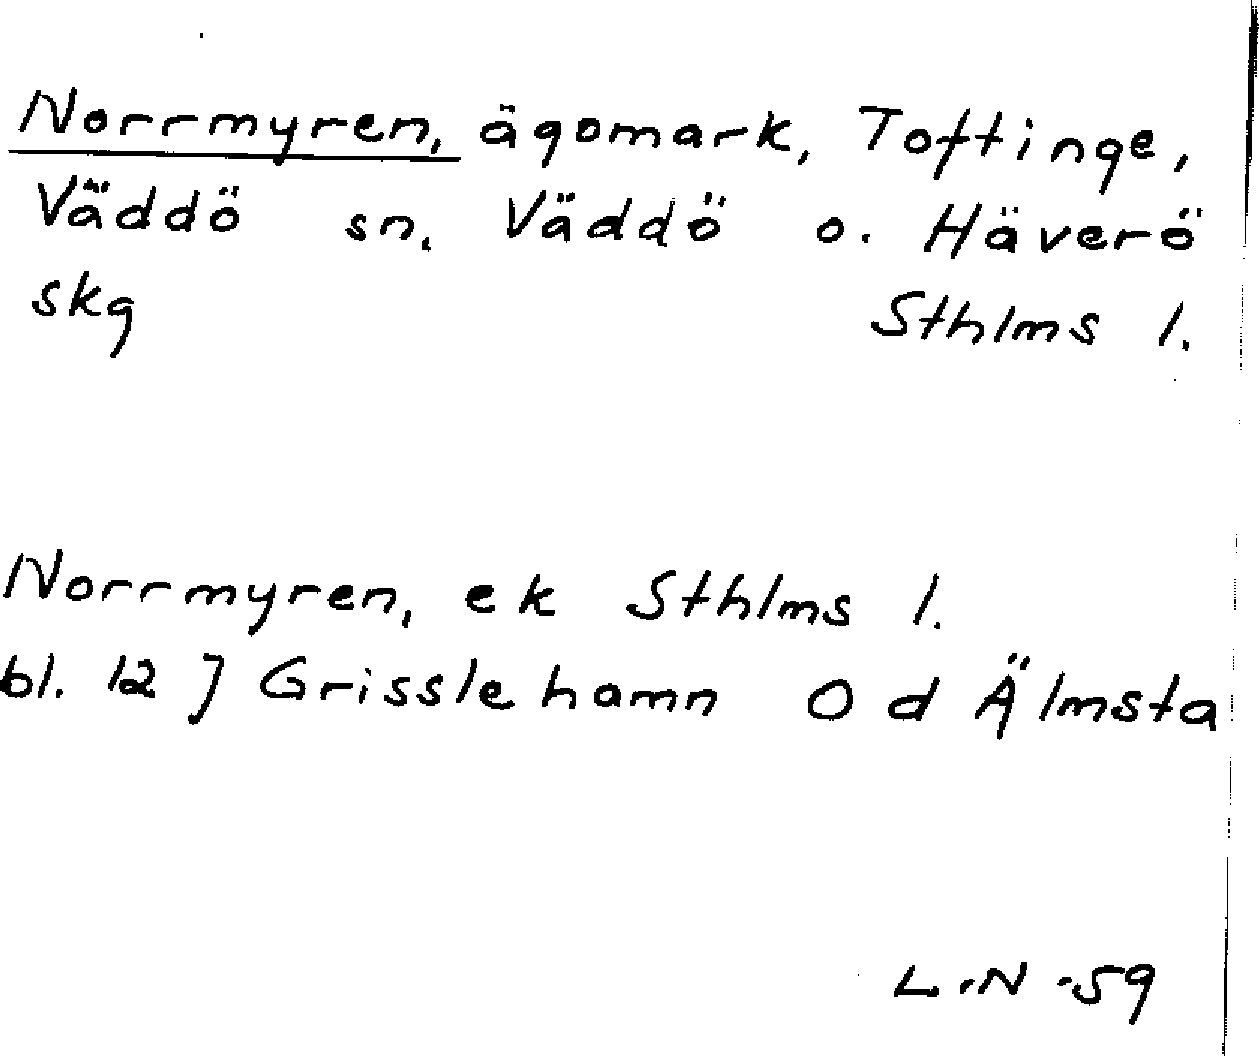 Norrmyren, ägomark, Toftinge,
Väddö sn. Väddö o. Häverö
skg Sthlms l.
Norrmyren, ek Sthlms l.
bl. 12 J Grisslehamn O d Älmsta
L.N -59